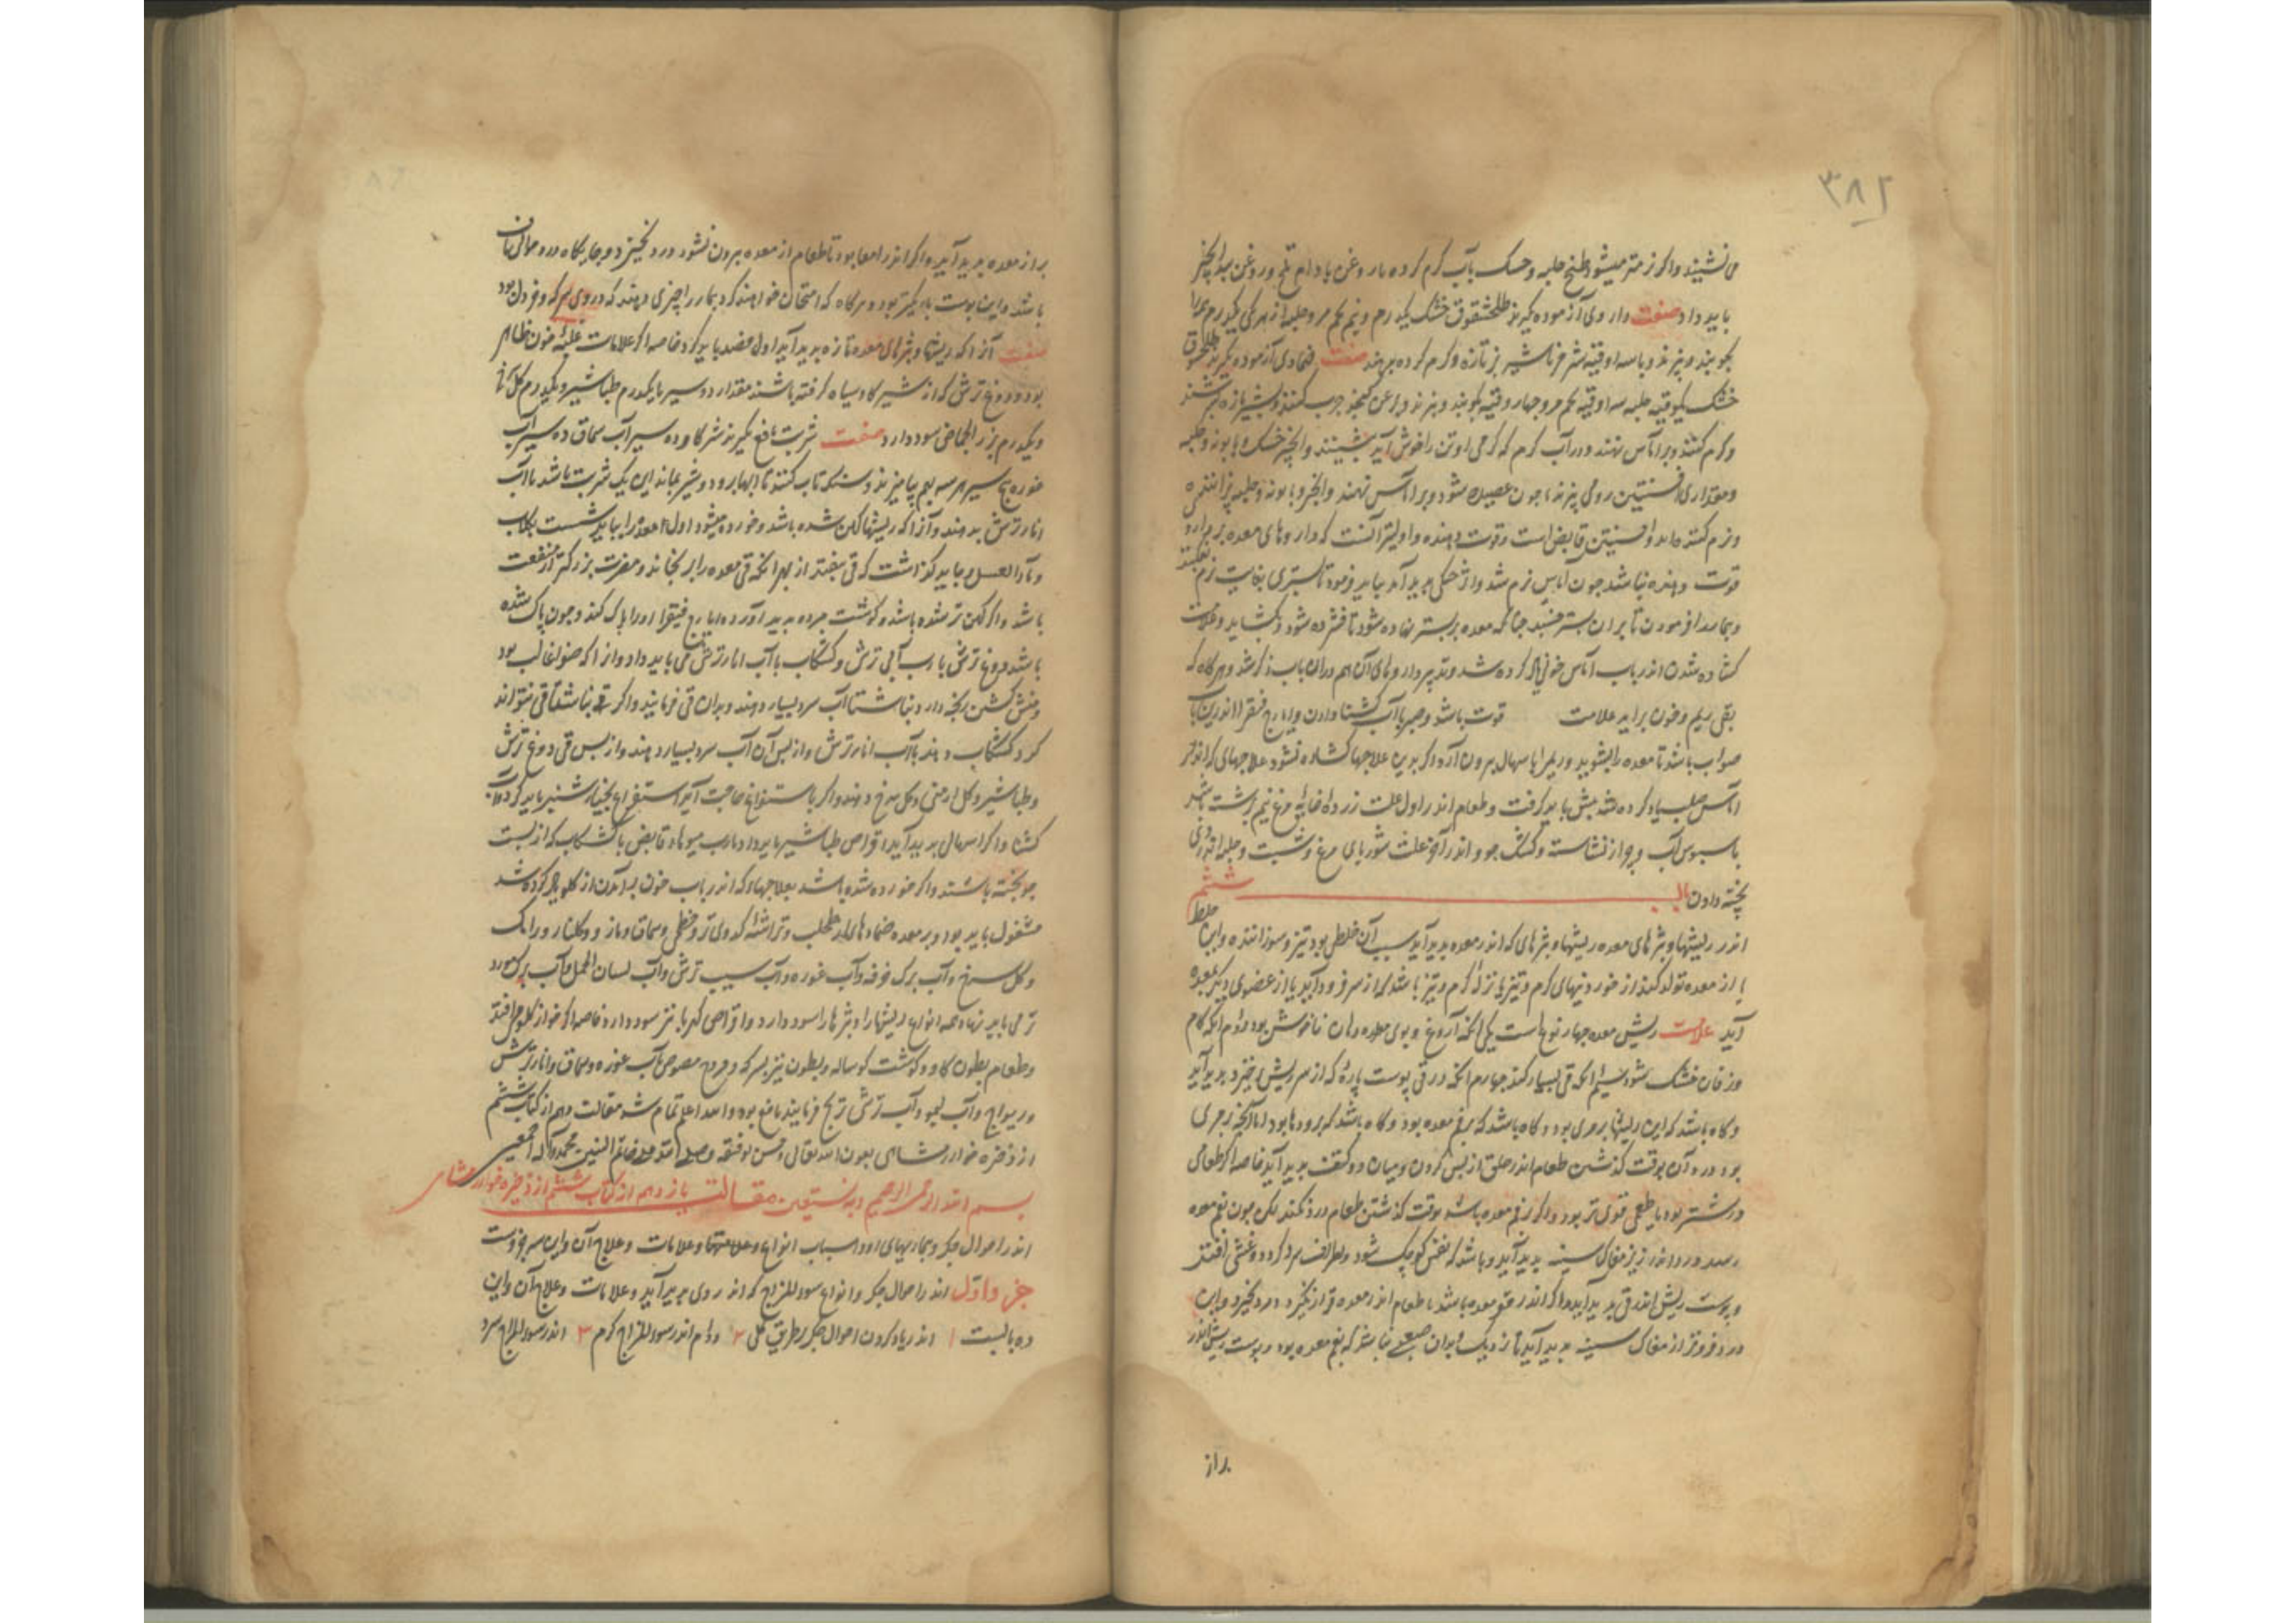 ۳۸۲
می نشیند واکر نرمتر میشود طبیخ حلبه وحسک بآب کرم کرده باروغن بادام تلخ وروغن بیدانجیر
باید داد صفت داروی آزموده بکیرند خشک یکدرم ونیم تخم مرو حلبه از هر یکی یکدرم
بکوبند وببزند وباسه اوقیه شیر خر یا شیر بز تازه وکرم کرده بدهند صفت ضمادی آزموده بکیرند
خشک یکوقیه حلبه سه اوقیه تخم مرو چهار وقیه بکوبند وببزند وبروغن کنجد چرب کنند وبشیر تازه بسرشند
وکرم کنند وبر آماس نهند ودر آب کرم که کرمی او تن را خوش آید بنشینند وانجیر خشک وبابونه وحلبه
ومقداری افسنتین رومی بپزند تا چون عصیده شود وبر آماس نهند وانجیر وبابونه وحلبه پزاننده
ونرم کننده اند وافسنتین قابض است وقوت دهنده واولیتر آنست که داروهای معده بی
قوت دهنده نباشد چون آماس نرم شد واثر پختکی پدید آمد بباید فرمود تا بستری بغایت نرم
وبیمار را فرمودن تا بر آن بستر خسبد چنانکه معده بر بستر نهاده شود تا فشرده شود وبکشاید وعلامت
کشاده شدن اندر باب آماس خونی یاد کرده شد وتدبیر داروهای آن هم در آن باب ذکر شد وهرکاه که
بقی ریم وخون براید علامت قوت باشد وصبر با آب کشنا دادن وایارج فیقرا اندرین باب
صواب باشد تا معده را بشوید وریم را باسهال بیرون آرد واکر بدین علاجها کشاده نشود علاجهای که اندر
آماس صلب یاد کرده شد پیش باید کرفت وطعام اندر اول علت زرده خایه مرغ نیم برشت باشد
باسبوس آب وحریره از نشاسته وکشک جو واندر آخر علت شوربای مرغ وشبت وحلبه اندر وی
پخته دادن باب ششم
اندر ریشها وبثرهای معده ریشها وبثرهای که اندر معده پدید آید سبب آن خلطی بود تیز وسوزاننده واین خلط
یا از معده تولد کند از خوردنیهای کرم وتیز یا نزله کرم وتیز باشد که از سر فرود آید یا از عضوی دیکر بمعده
آید علامت ریش معده چهار نوع است یکی آنکه آروغ وبوی معده ودهان ناخوش بود دوم آنکه کام
وزفان خشک شود سیم آنکه قی بسیار کند چهارم آنکه در قی پوست پاره که از سر ریش خیزد پدید آید
وکاه باشد که این ریشها بر مری بود وکاه باشد که بر فم معده بود وکاه باشد که بر رودها بود اما آنچه بر مری
بود درد آن بوقت کذشتن طعام اندر حلق از پس کردن ومیان دو کتف پدید آید خاصه اکر طعامی
درشتتر بود یا طعمی قوی تر بود واکر بر فم معده باشد بوقت کذشتن طعام درد نکند لیکن چون بفم معده
رسد درد اندر زیر مغاک سینه پدید آید وباشد که نفس کوچک شود واطراف سرد کردد وغشی افتد
وپوست ریش اندر قی پدید آید واکر اندر قعر معده باشد تا طعام اندر معده قرار نکیرد درد نخیزد واین
درد فروتر از مغاک سینه پدید آید که بفم معده بود وپوست ریش اندر
براز
براز معده پدید آید واکر اندر امعا بود تا طعام از معده بیرون نشود درد نخیزد وجایکاه درد حوالی ناف
باشد واین پوست باریکتر بود وهرکاه که امتحان خواهند کرد بیمار را چیزی دهند که در وی سرکه وخردل بود
صفت آنرا که ریشها وبثرهای معده تازه پدید آید اول فصد باید کرد خاصه اکر علامات غلبه خون ظاهر
بود ودوغ ترش که از شیر کاو سیاه کرفته باشند مقدار ده سیر با یکدرم طباشیر ویکدرم کل
ویکدرم بزر الحماض سود دارد صفت شربت نافع بکیرند شیر کاو ده سیر آب سماق ده سیر آب
غوره پنج سیر هر سه بهم بیامیزند وسنک تاب کنند تا آبها برود وشیر بماند این یک شربت باشد با آب
انار ترش بدهند وآنرا که ریشها کهن شده باشد وخورده میشود اول معده را بباید شست بجلاب
وماء العسل ونباید کذاشت که قی افتد از بهر آنکه قی معده را برنجاند ومضرت بزرکتر از منفعت
باشد واکر کهن تر شده باشد وکوشت مرده پدید آورده ایارج فیقرا او را پاک کند وچون پاک شده
باشد دوغ ترش با رب آبی ترش وکشکاب با آب انار ترش می باید داد وآنرا که صفرا غالب بود
ومنش کشتن رنجه دارد ناشتا آب سرد بسیار دهند وبدان قی فرمایند واکر ناشتا قی نتواند
کرد کشکاب دهند با آب انار ترش واز پس آن آب سرد بسیار دهند واز پس قی دوغ ترش
وطباشیر وکل ارمنی وکل سرخ دهند واکر باستفراغ حاجت آید استفراغ بخیارشنبر باید کرد وبآب
کشنا واکر اسهال پدید آید اقراص طباشیر باید داد با رب میوهاء قابض با کشکاب که از پست
جو پخته باشند واکر خورده شده باشد بعلاجهاء که اندر باب خون برآمدن از کلو یاد کرده شد
مشغول باید بود وبر معده ضمادهای از طحلب وتراشه کدوی تر وخطمی وسماق ومازو وکلنار ورامک
وکل سرخ وآب برک خرفه وآب غوره وآب سیب ترش وآب لسان الحمل وآب برک مورد
تر می باید نهاد وهمه انواع ریشها را وبثرها را سود دارد واقراص کهربا نیز سود دارد خاصه اکر خون از کلو بر می افتد
وطعام بطون کاو وکوشت کوساله وبطون نیز بسرکه وفروج مصوص بآب غوره وسماق وانار ترش
وریواج وآب لیمو وآب ترشی ترنج فرمایند نافع بود والله اعلم تمام شد مقالت دهم از کتاب ششم
از ذخیره خوارزمشاهی بعون الله تعالی وحسن توفیقه وصلی الله علی خاتم النبیین محمد وآله اجمعین
بسم الله الرحمن الرحیم وبه نستعین مقالت یازدهم از کتاب ششم از ذخیره خوارزمشاهی
اندر احوال جکر وبیماریهای او واسباب انواع وعلامتها وعلامات وعلاج آن واین سه جزوست
جزو اول اندر احوال جکر وانواع سوء المزاج که اندر وی پدید آید وعلامات وعلاج آن واین
ده بابست ۱ اندر یاد کردن احوال جکر بطریق کلی ۲ دوم اندر سوء المزاج کرم ۳ اندر سوء المزاج سرد